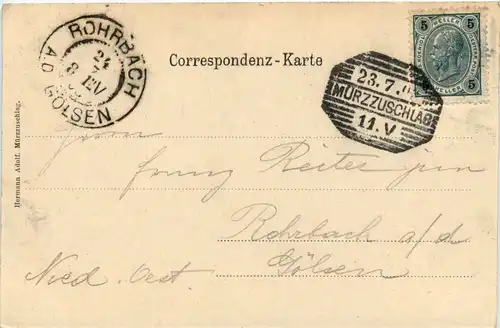 ROHRBACH
24
8 EV
A.D. GÖLSEN
Correspondenz-Karte
5 5
HELLER
5 HELLER 5
23.7.0
MÜRZZUSCHLAG
11.V
Herrn
Franz Reiter jun
Rohrbach a/d
Gölsen
Nied. Oest.
Hermann Adolf, Mürzzuschlag.